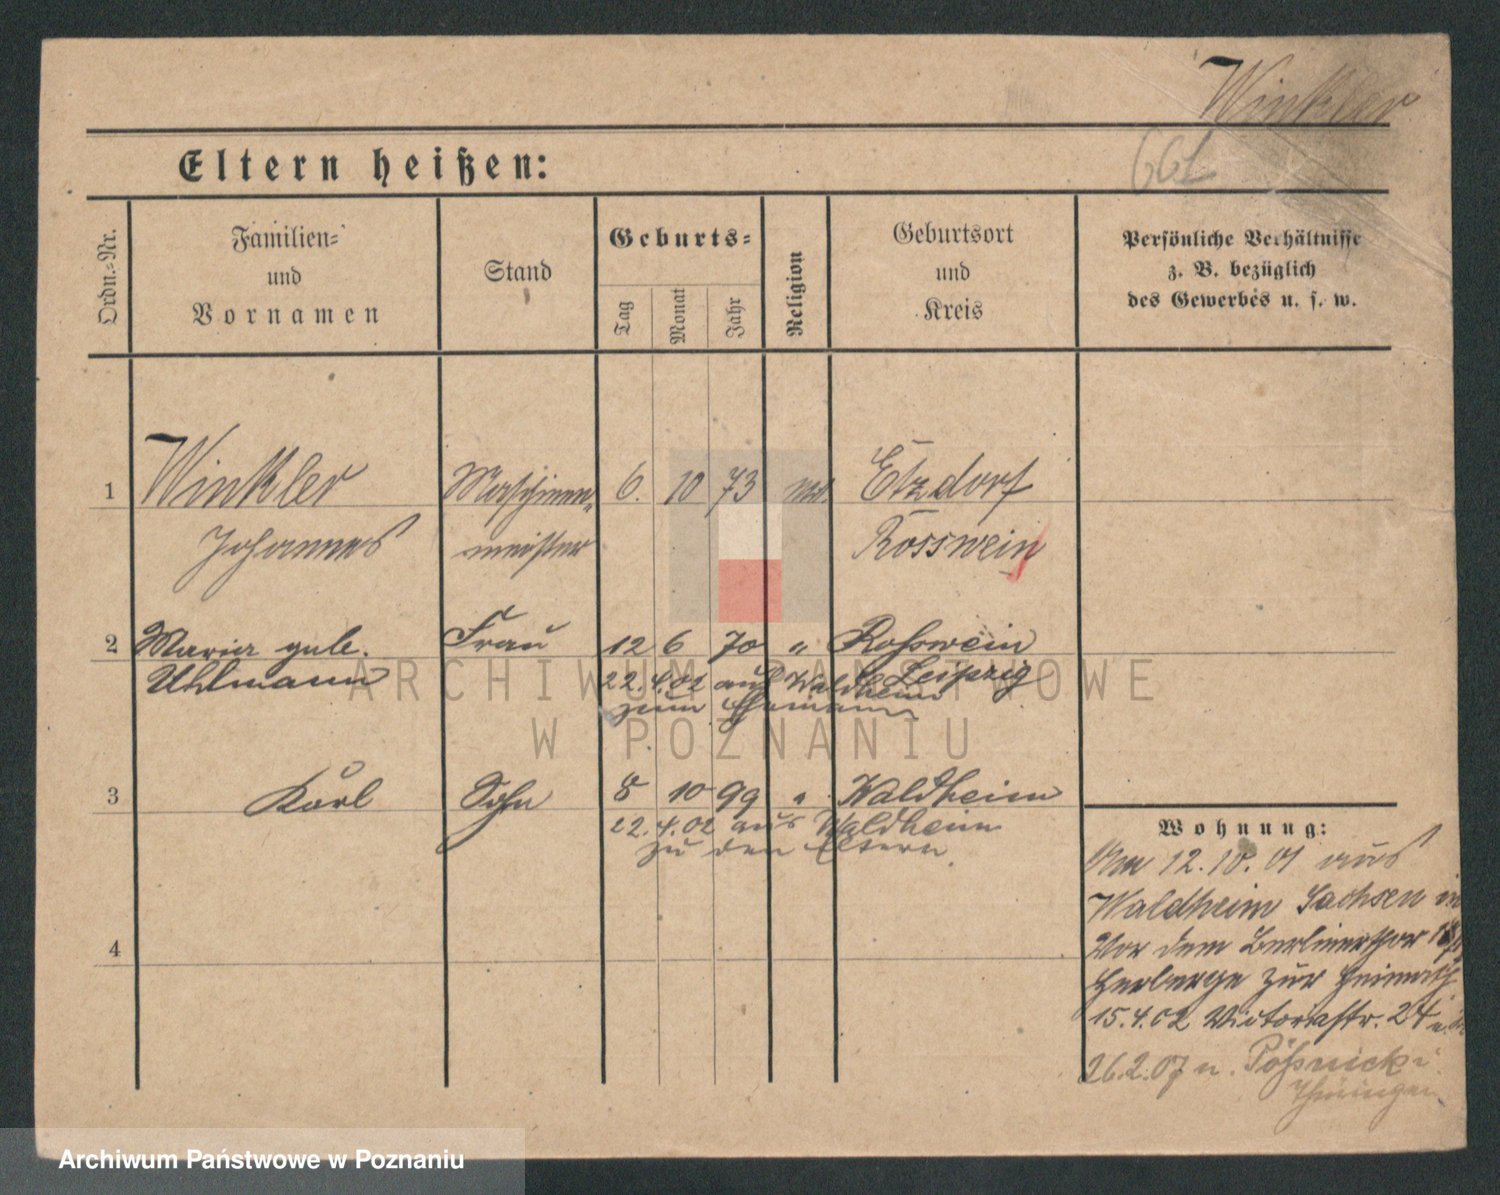 Winkler
661
Eltern heißen:
Ordn.-Nr.
Familien-
und
Vornamen
Stand
Geburts-
Tag
Monat
Jahr
Religion
Geburtsort
und
Kreis
Persönliche Verhältnisse
z. B. bezüglich
des Gewerbes u. s. w.
1 Winkler Maschinen- 6. 10 73 Etzdorf
Johannes meister Rosswein
2 Maria geb. Frau 12 6 70 " Roßwein
Uhlmann 22.4.02 aus Waldheim Leipzig
zum Ehemann
3 Karl Sohn 8 10 99 " Waldheim
22.4.02 aus Waldheim
zu den Eltern.
4
Wohnung:
12.10.01 aus
Waldheim Sachsen in
Vor dem Berlinerthor
Herberge zur Heimath
15.4.02 Victoriastr. 24
26.2.07 n. Pößneck i
Thüringen
ARCHIWUM PAŃSTWOWE
W POZNANIU
Archiwum Państwowe w Poznaniu